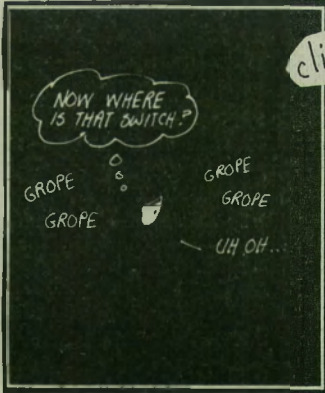 NOW WHERE
IS THAT SWITCH?
GROPE
GROPE
GROPE
GROPE
UH OH...
cli